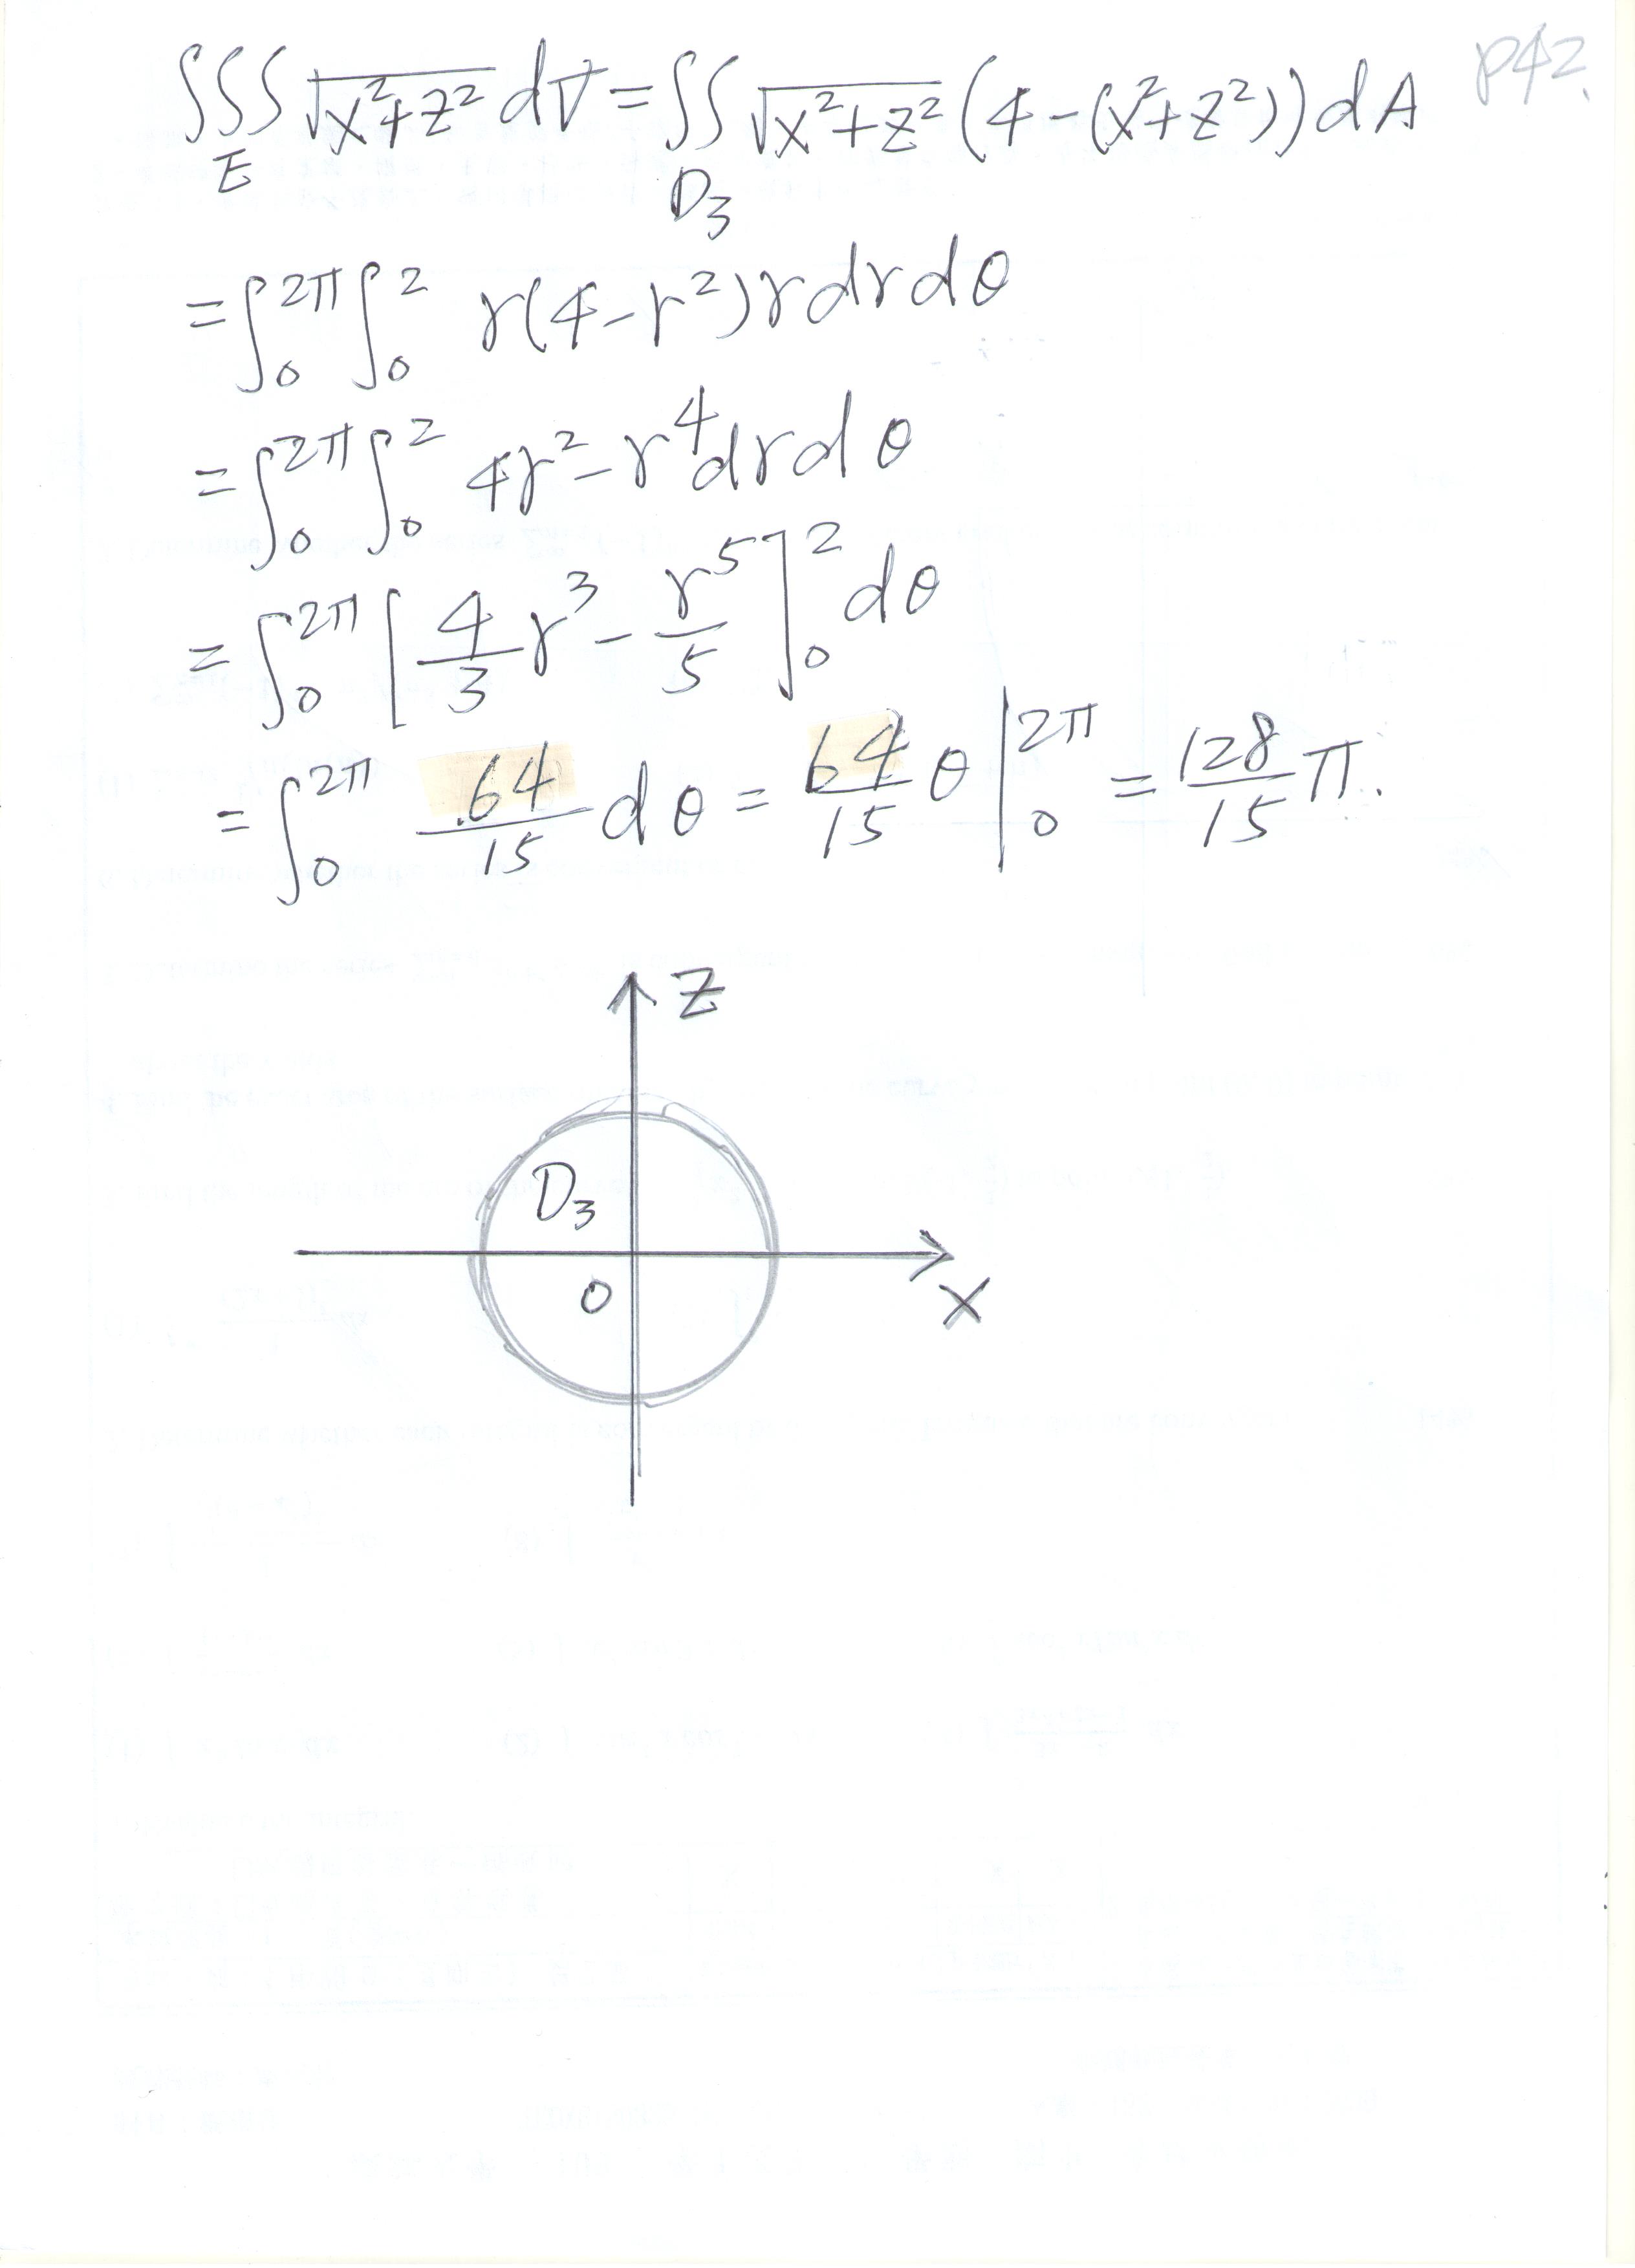 p42.
∫∫∫_E √(x²+z²) dV = ∫∫_{D₃} √(x²+z²) (4-(x²+z²)) dA
= ∫₀^{2π} ∫₀² r(4-r²) r dr dθ
= ∫₀^{2π} ∫₀² 4r²-r⁴ dr dθ
= ∫₀^{2π} [4/3 r³ - r⁵/5]₀² dθ
= ∫₀^{2π} 64/15 dθ = 64/15 θ |₀^{2π} = 128/15 π.
Z
D₃
O
X